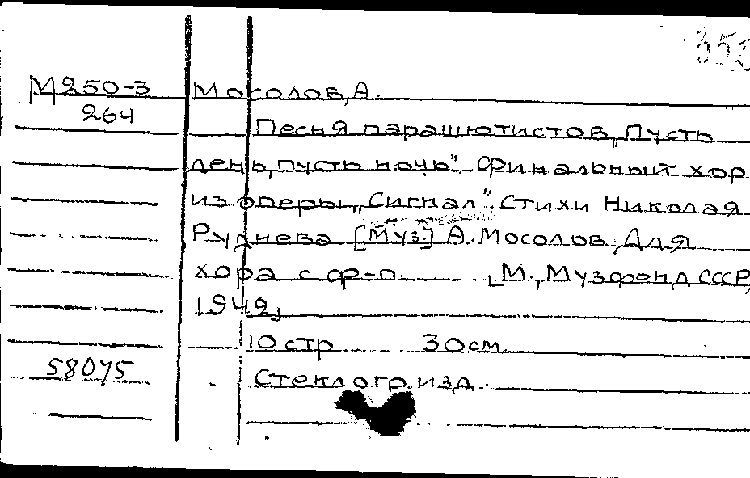 353
М250-3 Мосолов, А.
264 Песня парашютистов „Пусть
день, пусть ночь". Финальный хор
из оперы „Сигнал". Стихи Николая
Руднева [Муз.] А. Мосолов. Для
хора с ф-п. [М., Музфонд СССР,
1949]
10 стр 30 см.
58075 Стеклогр. изд.